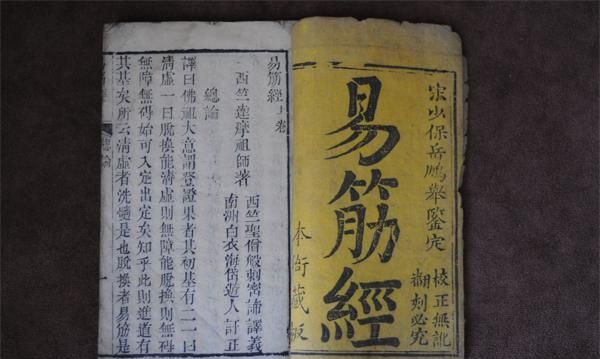 宋少保岳鵬舉鑒定
校正無訛
翻刻必究
易筋經
本衙藏板
易筋經上卷
西竺達摩祖師著
西竺聖僧般刺密諦譯義
南洲白衣海岱遊人訂正
總論
譯曰佛祖大意謂登證果者其初基有二一曰
清虛一曰脫換能清虛則無障能脫換則無碍
無障無碍始可入定出定矣知乎此則進道有
其基矣所云清虛者洗髓是也脫換者易筋是
總論